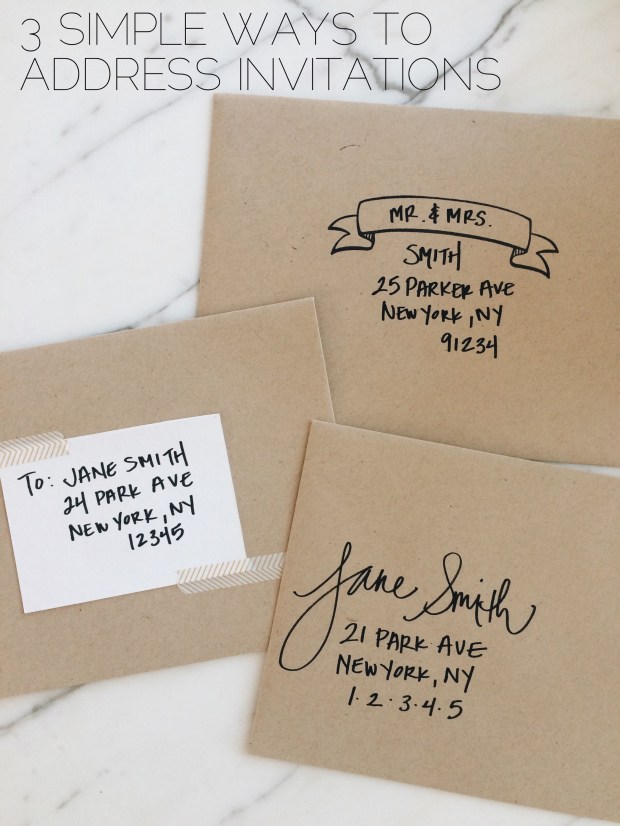 3 SIMPLE WAYS TO
ADDRESS INVITATIONS
MR. & MRS.
SMITH
25 PARKER AVE
NEW YORK, NY
91234
TO: JANE SMITH
24 PARK AVE
NEW YORK, NY
12345
Jane Smith
21 PARK AVE
NEW YORK, NY
1.2.3.4.5